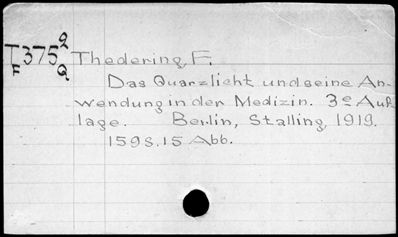 TF375Q Thedering, F.
Das Quarzlicht und seine An-
wendung in der Medizin. 3e Auf-
lage. Berlin, Stalling, 1919.
159 S. 15 Abb.